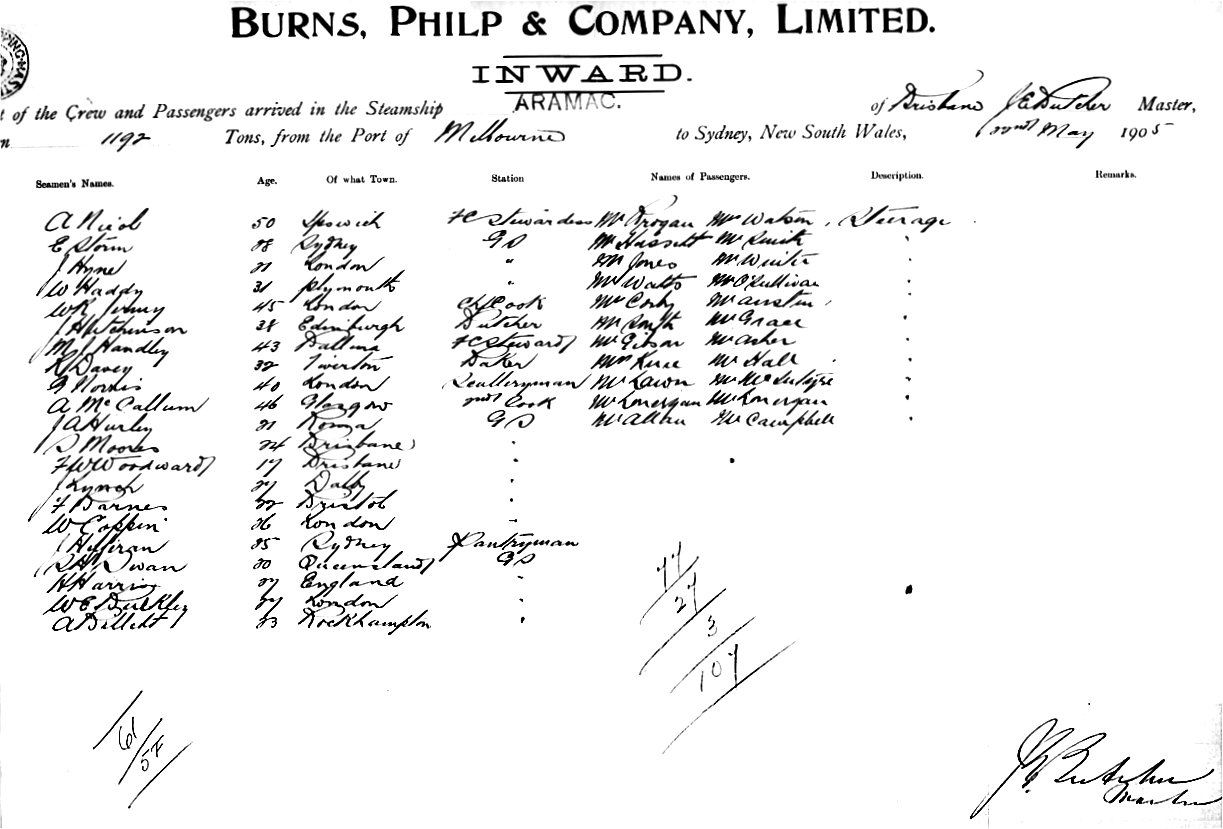 BURNS, PHILP & COMPANY, LIMITED.
INWARD.
t of the Crew and Passengers arrived in the Steamship ARAMAC. of Brisbane J E Butcher Master,
n 1192 Tons, from the Port of Melbourne to Sydney, New South Wales, 22nd May 1905
Seamen's Names. Age. Of what Town. Station Names of Passengers. Description. Remarks.
A Nicol 50 Ipswich FC Stewardess Mr Brogan Mrs Watson Steerage
E Storm 28 Sydney GS Mr Hassett Mr Smith "
J Hyne 21 London " Mr Jones Mr Winter "
W Haddy 31 Plymouth " Mr Watts Mr O'Sullivan "
W R 45 London Ch Cook Mr Cosby Mr Austin "
J Hutchinson 38 Edinburgh Butcher Mr Smith Mr Grace "
M J Handley 43 Ballina FC Steward Mr Gibson Mr Asher "
R Davey 32 Tiverton Baker Mr Hall "
G Norris 40 London Scalleryman Mr Lawn Mr McIntyre "
A McCallum 46 Glasgow 2nd Cook Mr Lonergan Mr Lonergan "
J A Hurley 21 Roma GS Mr Allan Mr Campbell "
S Moores 24 Brisbane "
F W Woodward 17 Brisbane "
J Lynch 27 Dalby "
F Barnes 22 Bristol "
W Coppin 26 London "
J 25 Sydney Pantryman
Swan 20 Queensland GS
H Harris 27 England "
W E Buckley 27 London "
A Billett 23 Rockhampton "
77
27
3
107
61
57
J E Butcher
Master